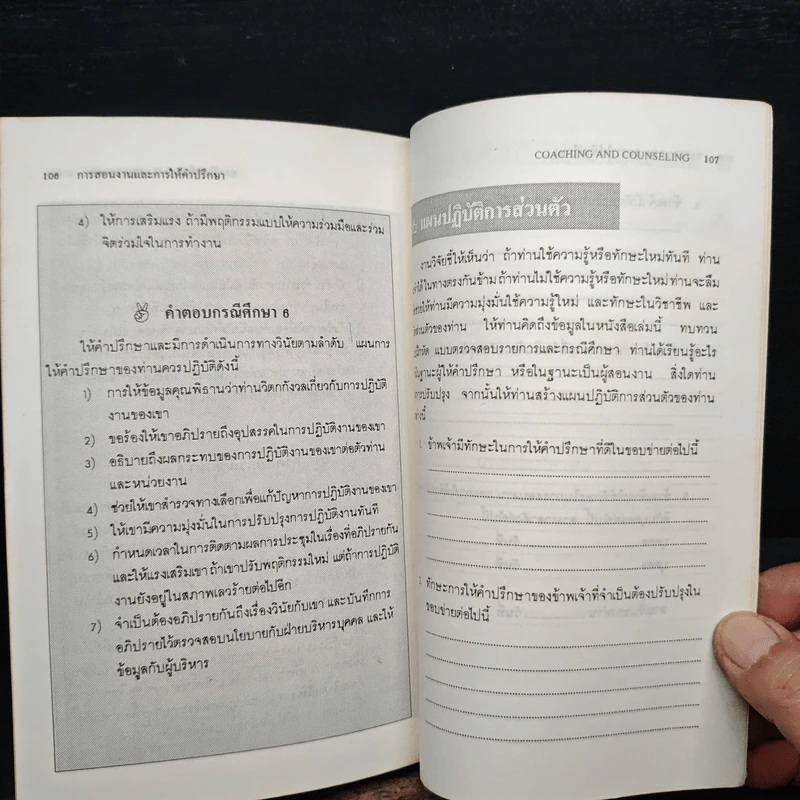 106 การสอนงานและการให้คำปรึกษา
4) ให้การเสริมแรง ถ้ามีพฤติกรรมแบบให้ความร่วมมือและร่วม
จิตร่วมใจในการทำงาน
คำตอบกรณีศึกษา 6
ให้คำปรึกษาและมีการดำเนินการทางวินัยตามลำดับ แผนการ
ให้คำปรึกษาของท่านควรปฏิบัติดังนี้
1) การให้ข้อมูลคุณพิธานว่าท่านวิตกกังวลเกี่ยวกับการปฏิบัติ
งานของเขา
2) ขอร้องให้เขาอภิปรายถึงอุปสรรคในการปฏิบัติงานของเขา
3) อธิบายถึงผลกระทบของการปฏิบัติงานของเขาต่อตัวท่าน
และหน่วยงาน
4) ช่วยให้เขาสำรวจทางเลือกเพื่อแก้ปัญหาการปฏิบัติงานของเขา
5) ให้เขามีความมุ่งมั่นในการปรับปรุงการปฏิบัติงานทันที
6) กำหนดเวลาในการติดตามผลการประชุมในเรื่องที่อภิปรายกัน
และให้แรงเสริมเขา ถ้าเขาปรับพฤติกรรมใหม่ แต่ถ้าการปฏิบัติ
งานยังอยู่ในสภาพเลวร้ายต่อไปอีก
7) จำเป็นต้องอภิปรายกันถึงเรื่องวินัยกับเขา และบันทึกการ
อภิปรายไว้ตรวจสอบนโยบายกับฝ่ายบริหารบุคคล และให้
ข้อมูลกับผู้บริหาร
COACHING AND COUNSELING 107
แผนปฏิบัติการส่วนตัว
งานวิจัยชี้ให้เห็นว่า ถ้าท่านใช้ความรู้หรือทักษะใหม่ทันที ท่าน
ได้ ในทางตรงกันข้าม ถ้าท่านไม่ใช้ความรู้หรือทักษะใหม่ ท่านจะลืม
ให้ท่านมีความมุ่งมั่นใช้ความรู้ใหม่ และทักษะในวิชาชีพ และ
ส่วนตัวของท่าน ให้ท่านคิดถึงข้อมูลในหนังสือเล่มนี้ ทบทวน
แบบตรวจสอบรายการและกรณีศึกษา ท่านได้เรียนรู้อะไร
ผู้ให้คำปรึกษา หรือในฐานะเป็นผู้สอนงาน สิ่งใดท่าน
การปรับปรุง จากนั้นให้ท่านสร้างแผนปฏิบัติการส่วนตัวของท่าน
ข้าพเจ้ามีทักษะในการให้คำปรึกษาที่ดีในขอบข่ายต่อไปนี้
ทักษะการให้คำปรึกษาของข้าพเจ้าที่จำเป็นต้องปรับปรุงใน
ขอบข่ายต่อไปนี้